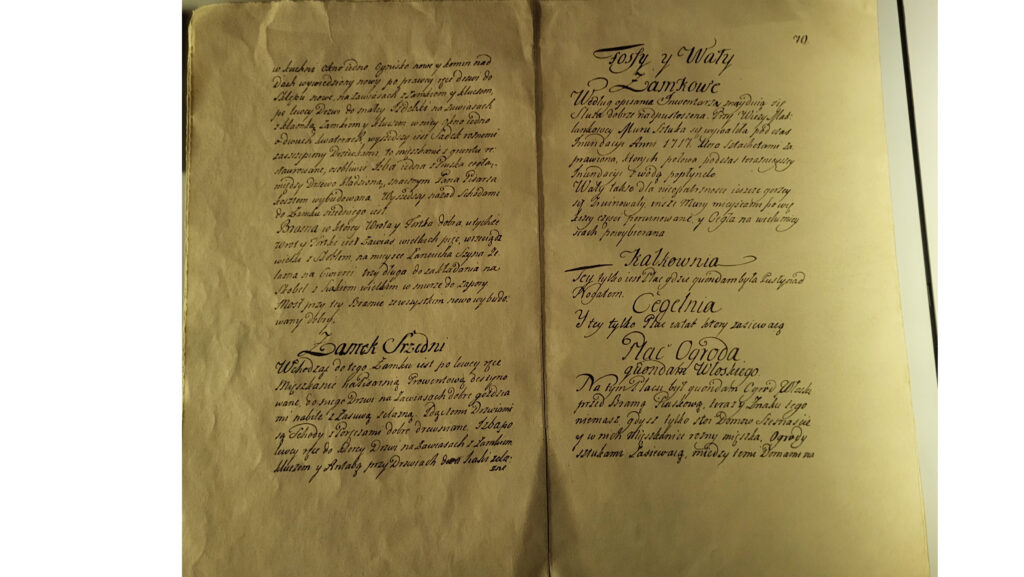 w kuchni okno iedno Ognisko nowe y komin nad
Dach wywiedziony nowy po prawey ręce drzwi do
Sklepu nowe, na zawiasach z Zamkiem y kluczem,
po lewey Drzwi do małey Izdebki na zawiasach
z klamką Zamkiem y kluczem w niey Okno iedno
o dwoch kwaterach, wyszedszy iest Sadek rożnemi
zaszczepiony Drzewkami, to mieszkanie z gruntu re-
staurowane, osobliwie Izba iedna z Pruska cegłą,
między Drzewo kładzioną, znacznym Pana Pisarza
kosztem wybudowana. Wyszedszy nazad Schodami
do Zamku średniego iest
Brama w ktorey Wrota y Fortka dobra, u tychże
Wrot y Fortki iest zawias wielkich pięć, wrzeciądz
wielki z Skoblem, na mieysce Łancucha Szyna że-
lazna na Cwierci trzy długa do zakładania na
Skobel z hakiem wielkim w murze do zapory
Most przy tey Bramie zewszystkim nowo wybudo-
wany dobry.
Zamek Srzedni
Wchodząc do tego Zamku iest po lewey ręce
Mieszkanie na Pisarnią Prowentową destyno-
wane, do niego Drzwi na zawiasach dobre gozdzia-
mi nabite z Zasuwą żelazną. Pod temi Drzwiami
są Schody z Poręczami dobre drewniane. Izba po
lewey ręce do Niey Drzwi na Zawiasach z Zamkiem
kluczem y Antabą przy Drzwiach haki żela-
zne
79.
Fossy y Wały
Zamkowe
Według opisania Inwentarza znayduią się
Fluta dobrze nadpustoszona. Przy Wieży Mas-
lankowey Muru Sztuka się wywaliła podczas
Inundacyi Anni 1717. Ktora sztachetami za-
prawiona, ktorych połowa podczas teraznieyszey
Inundacyi z wodą popłyneło.
Wały także dla nieopatrznosci ieszcze gorzey
są zruinowały, wniże Mury mieyscami po wię-
kszey części poruinowane, y Cegła na wielu miey-
scach powybierana
Kalkownia
Tey tylko iest Plac gdzie quondam była Pusty nad
Nogatem.
Cegelnia
Y tey tylko Plac został ktory zasiewaią
Plac Ogroda
quondam Włoskiego.
Na tym Placu był quondam Ogrod Włoski
przed Bramą Piaskową, teraz y Znaku tego
niemasz, gdysz tylko stoi Domow Szesnascie
y w nich Mieszkancie rożny mięszka, Ogrody
sztukami Zasiewaią, między temi Domami na